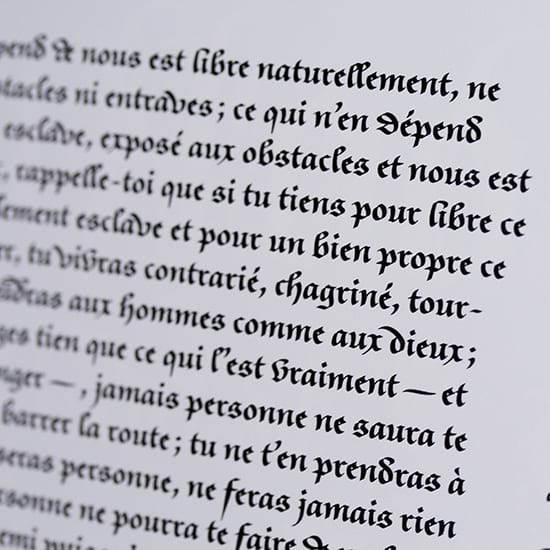 pend de nous est libre naturellement, ne
stacles ni entraves ; ce qui n'en dépend
esclave, exposé aux obstacles et nous est
, rappelle-toi que si tu tiens pour libre ce
lement esclave et pour un bien propre ce
tu vivras contrarié, chagriné, tour-
dras aux hommes comme aux dieux ;
ges tien que ce qui l'est vraiment — et
nger —, jamais personne ne saura te
barrer la route ; tu ne t'en prendras à
seras personne, ne feras jamais rien
rsonne ne pourra te faire de
emi